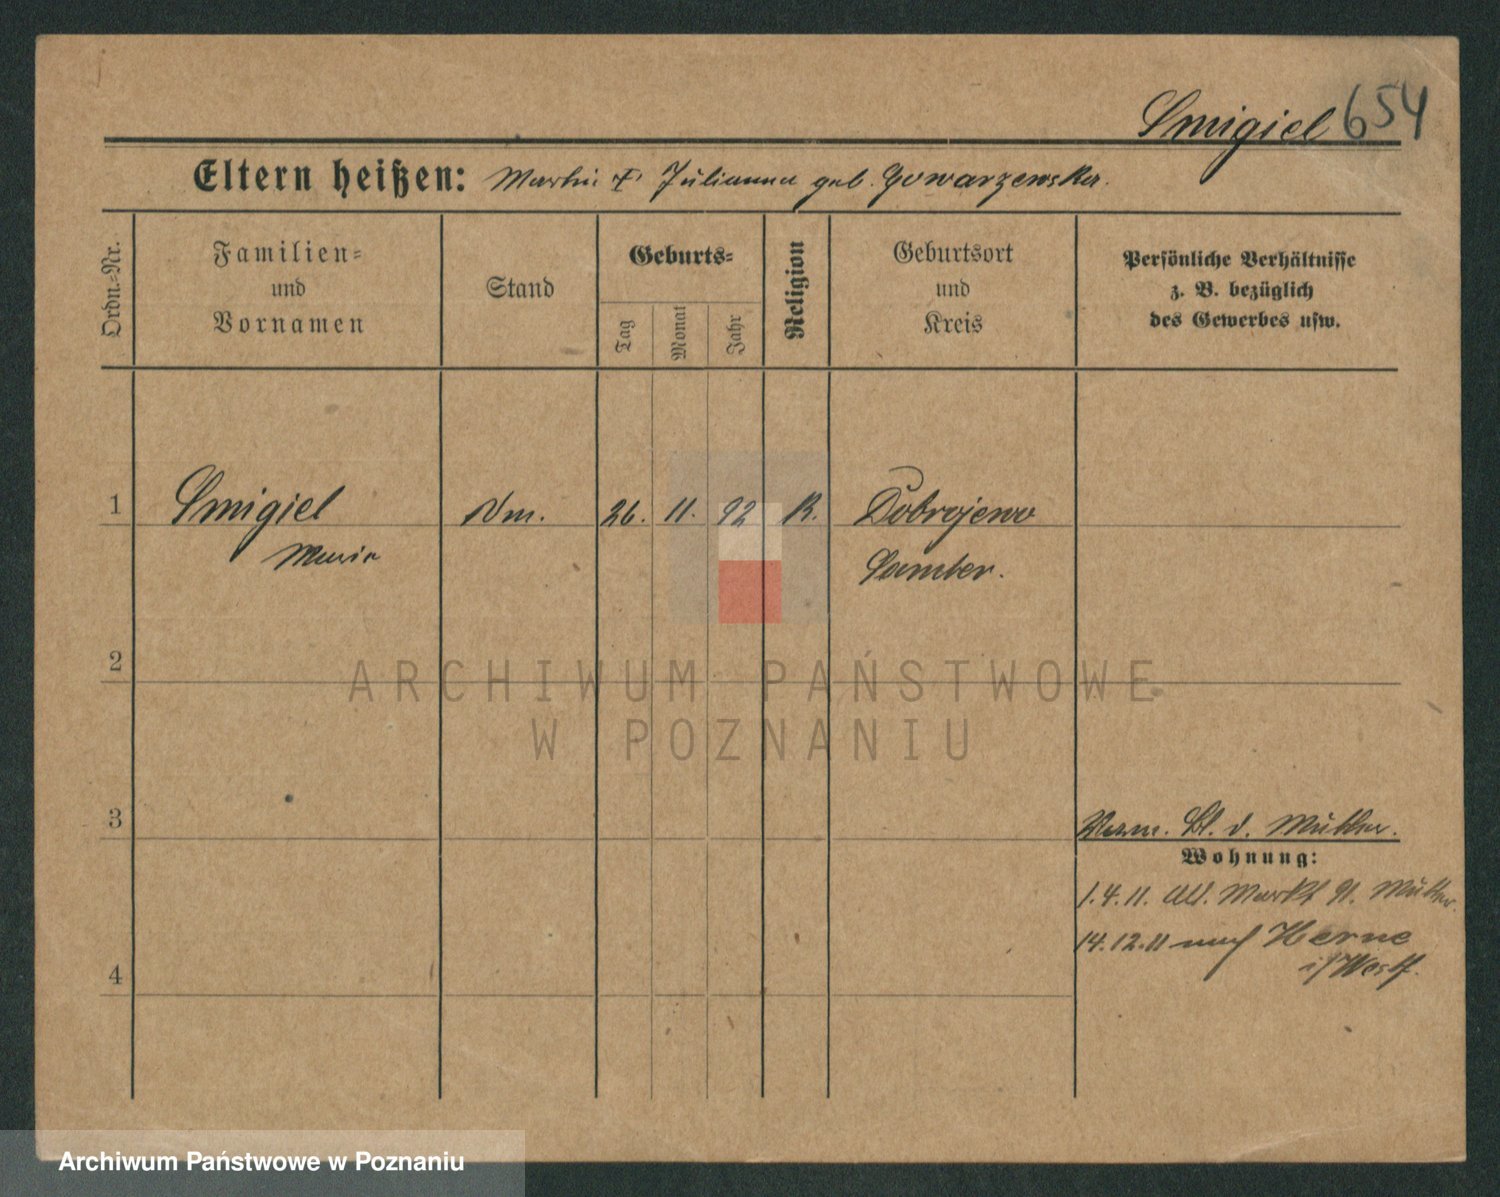 Smigiel 654
Eltern heißen: Martin + Julianna geb. Gowarzewska.
Ordn.-Nr.
Familien- und Vornamen
Stand
Geburts-
Tag
Monat
Jahr
Religion
Geburtsort und Kreis
Persönliche Verhältnisse
z. B. bezüglich
des Gewerbes usw.
1 Smigiel 26. 11. 92 R. Dobrojewo
Maria Samter.
2
ARCHIWUM PAŃSTWOWE
W POZNANIU
3
d. Mutter.
Wohnung:
1.4.11. Alt. Markt 91. Mutter.
14.12.11 nach Herne
i/Westf.
4
Archiwum Państwowe w Poznaniu